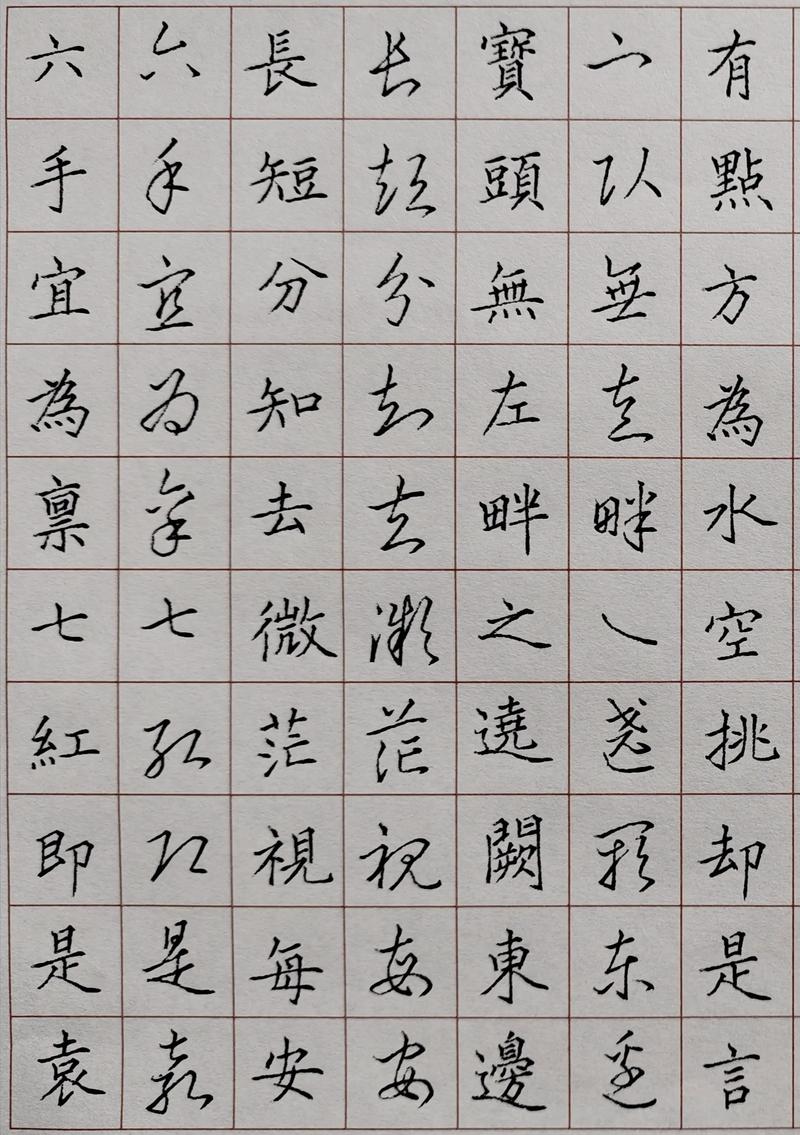 有點方為水空挑却是言
宀頭無左畔辶遶闕東邊
寶頭無左畔之遶闕東邊
長短分知去微茫視每安
長短分知去微茫視每安
六手宜為稟七紅即是袁
六手宜為禀七紅即是袁